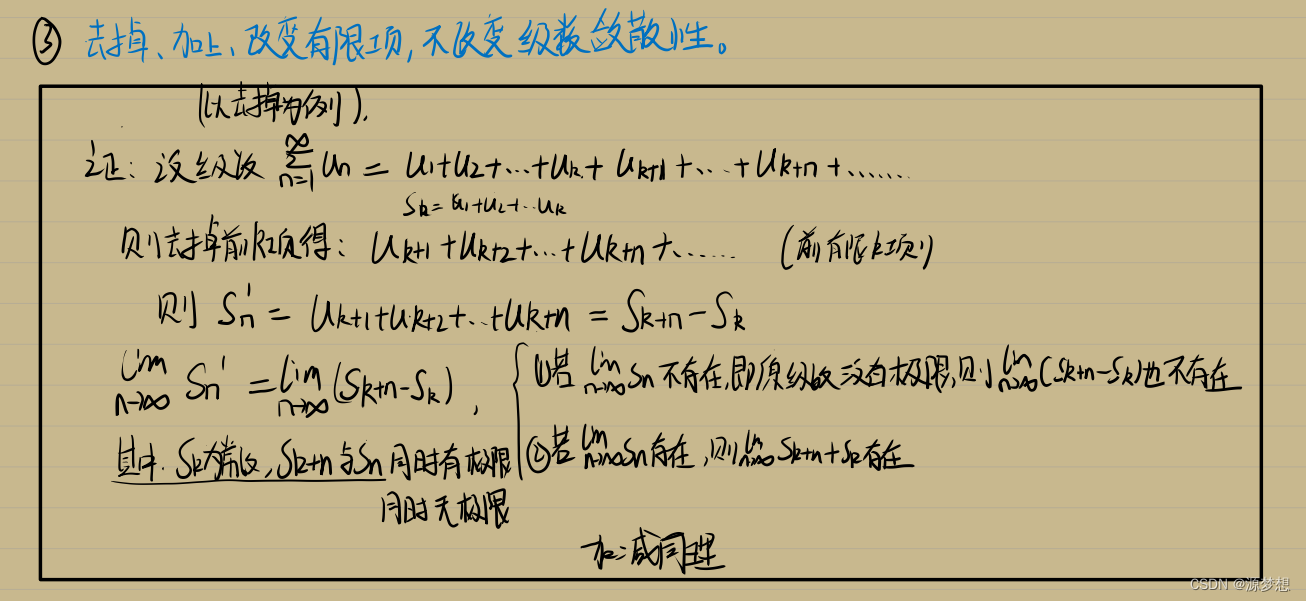 ③ 去掉、加上、改变有限项,不改变级数敛散性。
(以去掉为例).
证: 设级数 ∞∑n=1 Un = U1+U2+…+Uk+ Uk+1 +…+Uk+n+……
Sk=U1+U2+…Uk
则去掉前k项得: Uk+1+Uk+2+…+Uk+n+…… (前有限k项)
则 Sn' = Uk+1+Uk+2+…+Uk+n = Sk+n-Sk
lim n→∞ Sn' = lim n→∞ (Sk+n-Sk),
① 若 lim n→∞ Sn 不存在,即原级数没有极限,则 lim n→∞ (Sk+n-Sk)也不存在
其中. Sk为常数,Sk+n与Sn同时有极限
② 若 lim n→∞ Sn存在,则 lim n→∞ Sk+n+Sk存在
同时无极限
加减同理
CSDN @源梦想